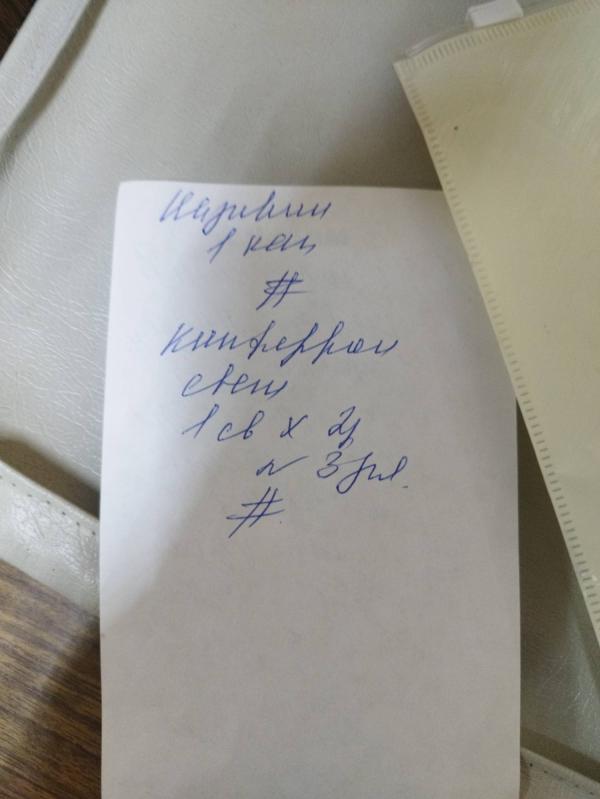 Називин
1 кап
#
Кипферрон
свеч
1 св х 2
№ 3 дня.
#